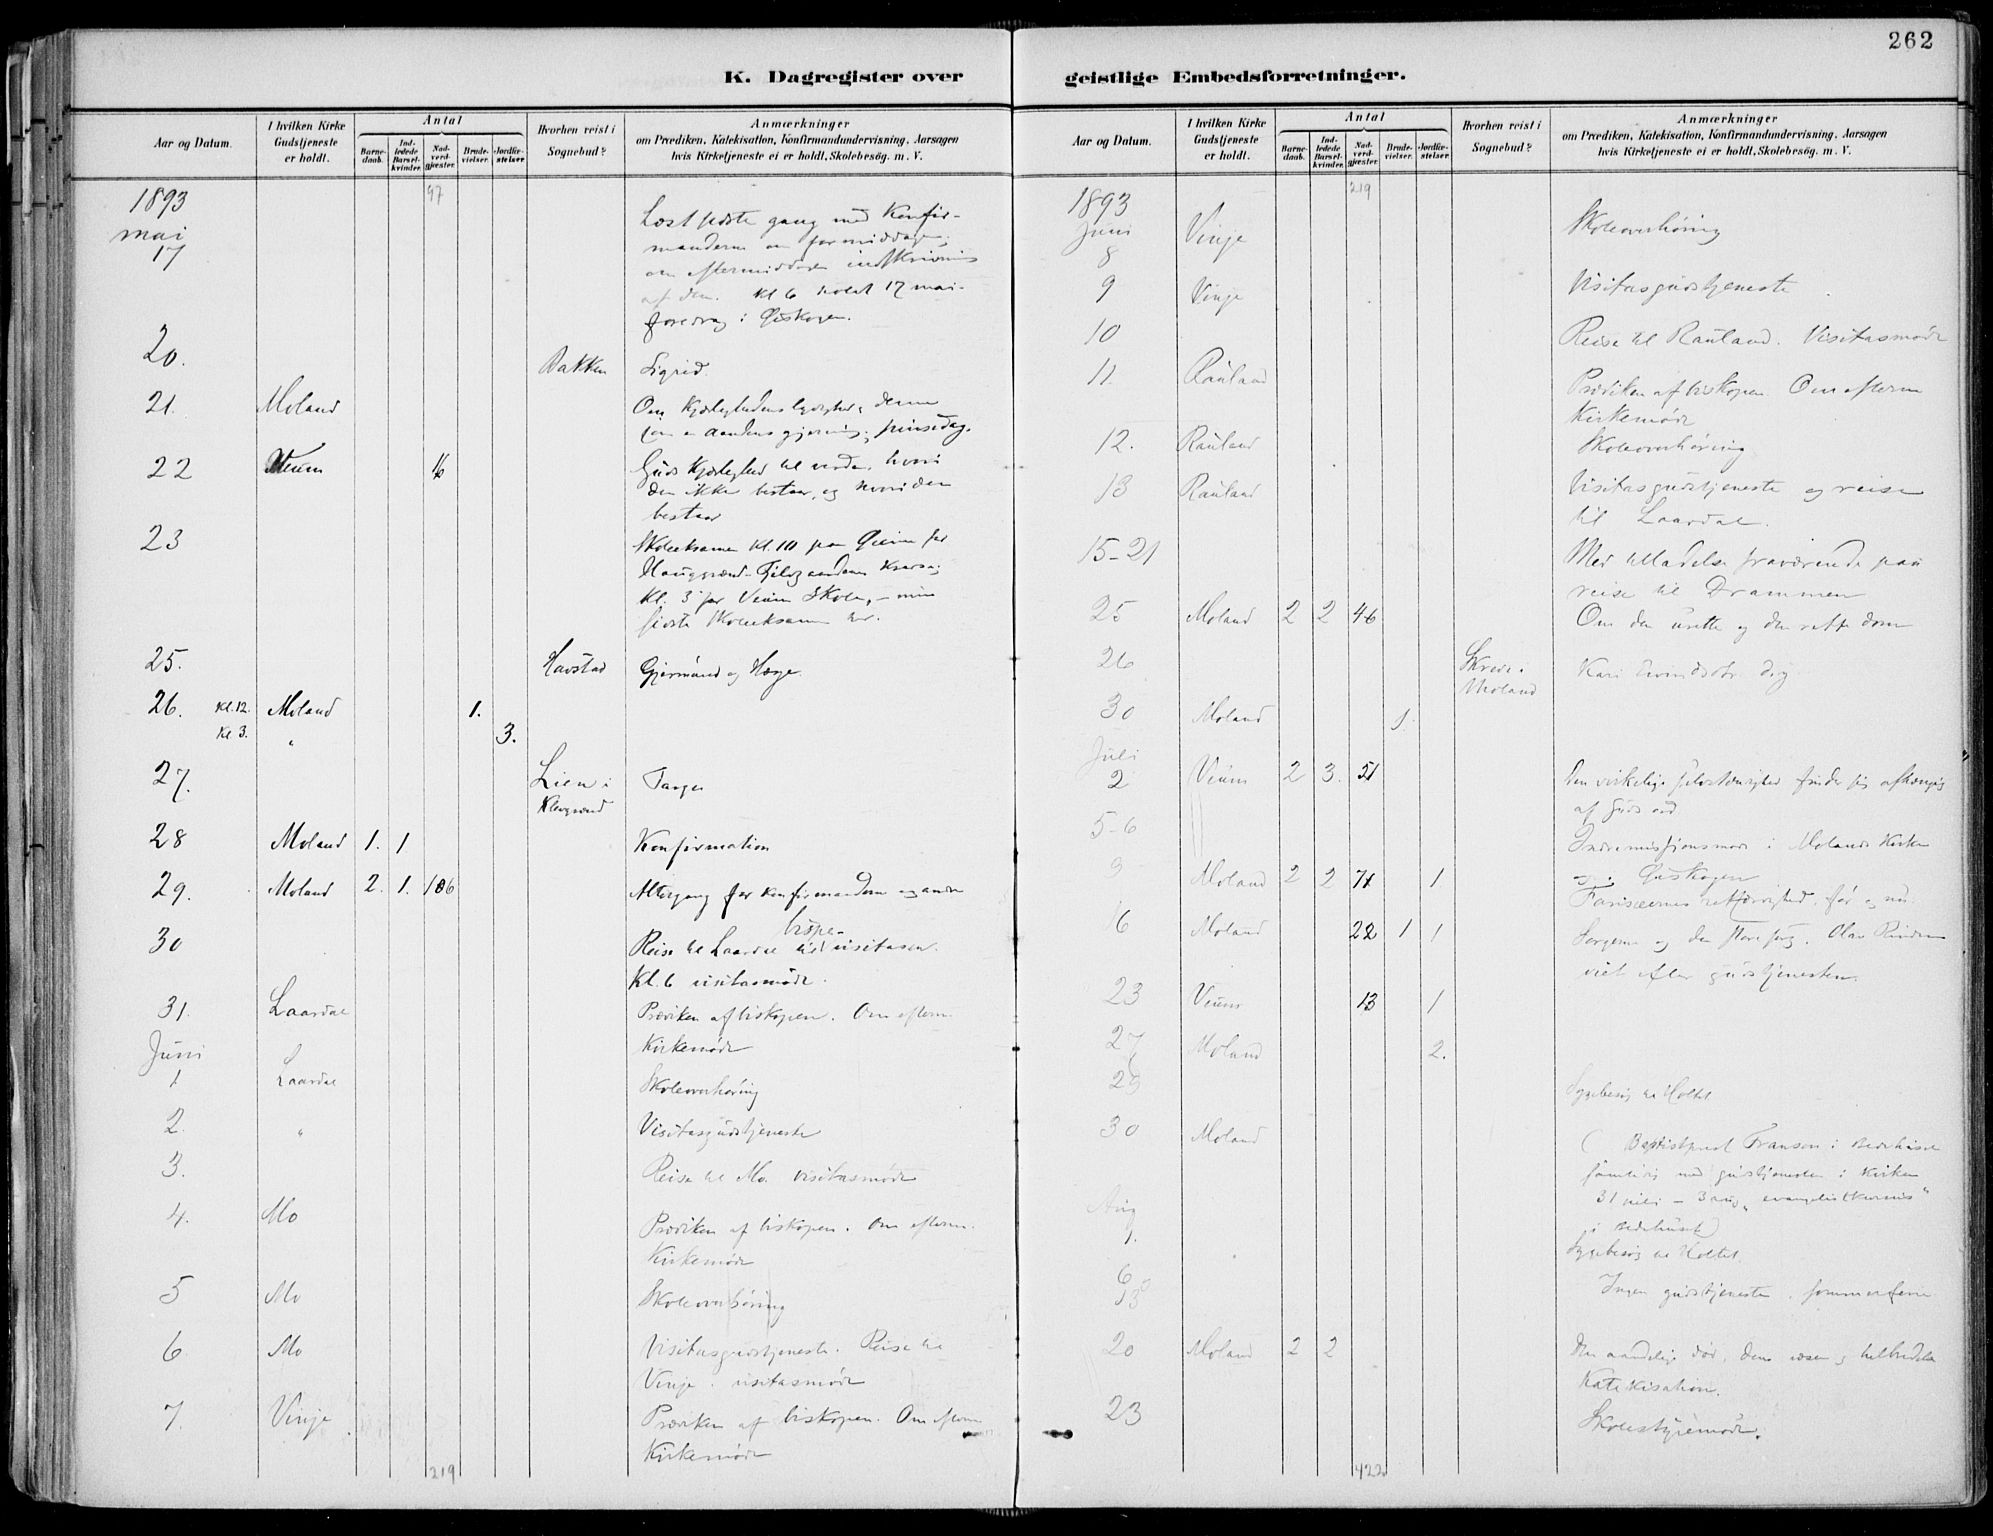 262
K. Dagregister over geistlige Embedsforretninger.
Aar og Datum.
I hvilken Kirke Gudstjeneste er holdt.
Antal
Barnedaab.
Indledede Barselkvinder.
Nadverdgjæster.
Brudevielser.
Jordfæstelser
Hvorhen reist i Sognebud?
Anmærkninger
om Prædiken, Katekisation, Konfirmandundervisning, Aarsagen hvis Kirketjeneste ei er holdt, Skolebesøg. m. V.
1893 97
mai
17 Læst første gang med Konfir-
manderne om formiddagen;
om eftermiddagen indskrivning
af dem. Kl 6 holdt 17 mai-
foredrag i Øiskogen.
20. Bakken Sigrid.
21. Moland Om Kjærlighedens lydighed, denne
som en aandens gjerning, pinsedag.
22 Veum 16 Guds Kjærlighed til verden, hvori
den ikke bestaar, og hvori den
bestaar
23 Skoleeksamen Kl. 10 paa
Kl. 3 for Veum Skole, – min
sidste Skoleeksamen her.
25. Havstad Gjermund og Hæge.
26. Kl. 12. Moland 1.
Kl. 3. " 3.
27. Lien i
Klevgrænd
28 Moland 1. 1 Konfirmation
29. Moland 2. 1. 106 Altergang for konfirmanderne og andre
30 Reise til Laardal til bispe-visitasen.
Kl. 6 visitasmøde.
31. Laardal Prædiken af biskopen. Om efterm.
Kirkemøde
Juni
1 Laardal Skoleoverhøring
2. " Visitasgudstjeneste
3. Reise til Mo. visitasmøde
4. Mo Prædiken af biskopen. Om efterm.
Kirkemøde
5 Mo Skoleoverhøring
6 Mo Visitasgudstjeneste. Reise til
Vinje. visitasmøde
7. Vinje Prædiken af biskopen. Om efterm
Kirkemøde
219
Aar og Datum.
I hvilken Kirke Gudstjeneste er holdt.
Antal
Barnedaab.
Indledede Barselkvinder.
Nadverdgjæster.
Brudevielser.
Jordfæstelser
Hvorhen reist i Sognebud?
Anmærkninger
om Prædiken, Katekisation, Konfirmandundervisning, Aarsagen hvis Kirketjeneste ei er holdt, Skolebesøg. m. V.
1893 219
Juni
8 Vinje Skoleoverhøring
9 Vinje Visitasgudstjeneste
10 Reise til Rauland. Visitasmøde
11. Rauland Prædiken af biskopen Om efterm
Kirkemøde
12. Rauland Skoleoverhøring
13 Rauland Visitasgudstjeneste og reise
til Laardal.
15-21 Med tilladelse fraværende paa
reise til Drammen
25 Moland 2 2 46 Om den urette og den rette dom
26 Skrede i
Moland Kari
30 Moland 1.
Juli
2 Veum 2 3. 51 Den virkelige selvstændighed finder sig afhængig
af Guds ord
5-6 Indremissionsmøde i Molands Kirke
og i Øiskogen
9 Moland 2 2 71 1 Farisæernes retfærdighed, før og nu.
16 Moland 22 1 1 Sorgerne og den store sorg. Olav
viet efter gudstjenesten.
23 Veum 13 1
27 Moland 2.
29 Sygebesøg til Holtet
30 Moland ( Baptistprest Franson i bedehuset
samtidig med gudstjenesten i Kirken
31 juli – 3 aug „evangelistkursus"
i bedehuset)
Aug
1. Sygebesøg til Holtet.
6
13 Ingen gudstjeneste, sommerferie
20 Moland 2 2 Den aandelige død, dens væsen og helbredelse
Katekisation.
23 Skolestyremøde.
422